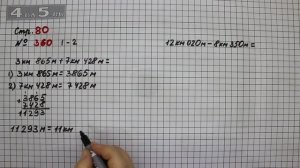 4 А 5
Стр. 80
№ 360 1-2
3 км 865 м + 7 км 428 м =
1) 3 км 865 м = 3865 м
2) 7 км 428 м = 7428 м
+ 3865
7428
11293
11293 м = 11 км
12 км 020 м - 8 км 350 м =